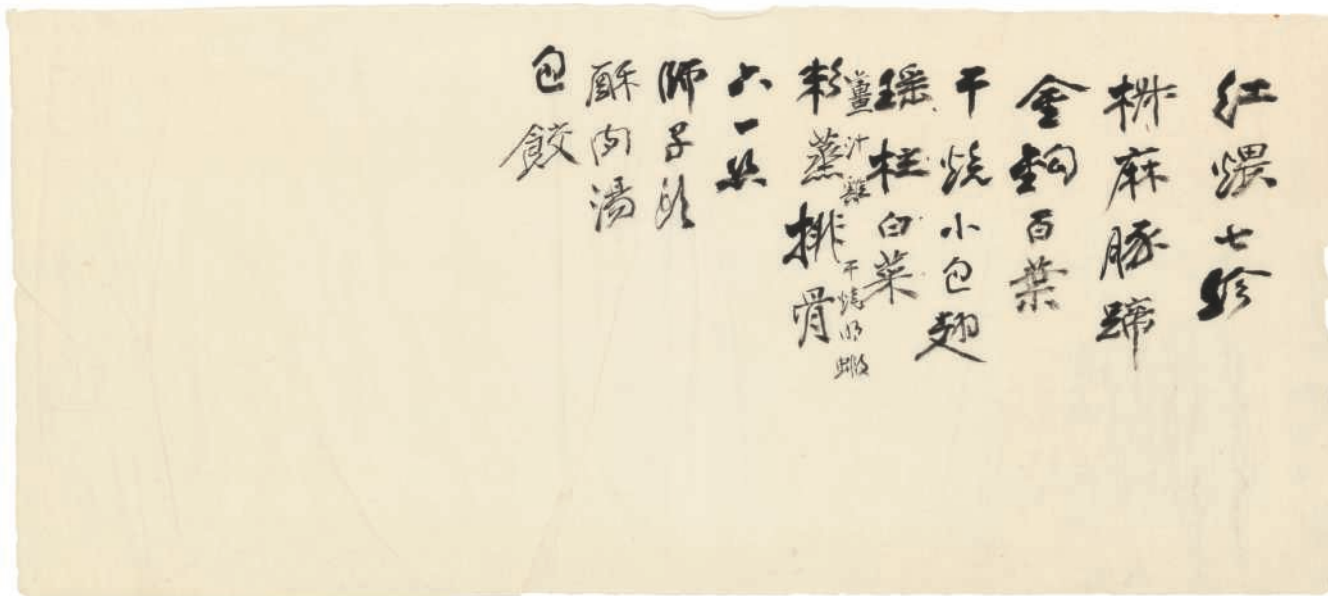 紅煨七珍
椒麻豚蹄
金鈎百葉
干燒小包翅
瑤柱白菜
薑汁雞 干燒明蝦
粉蒸排骨
六一絲
師子頭
酥肉湯
包餃